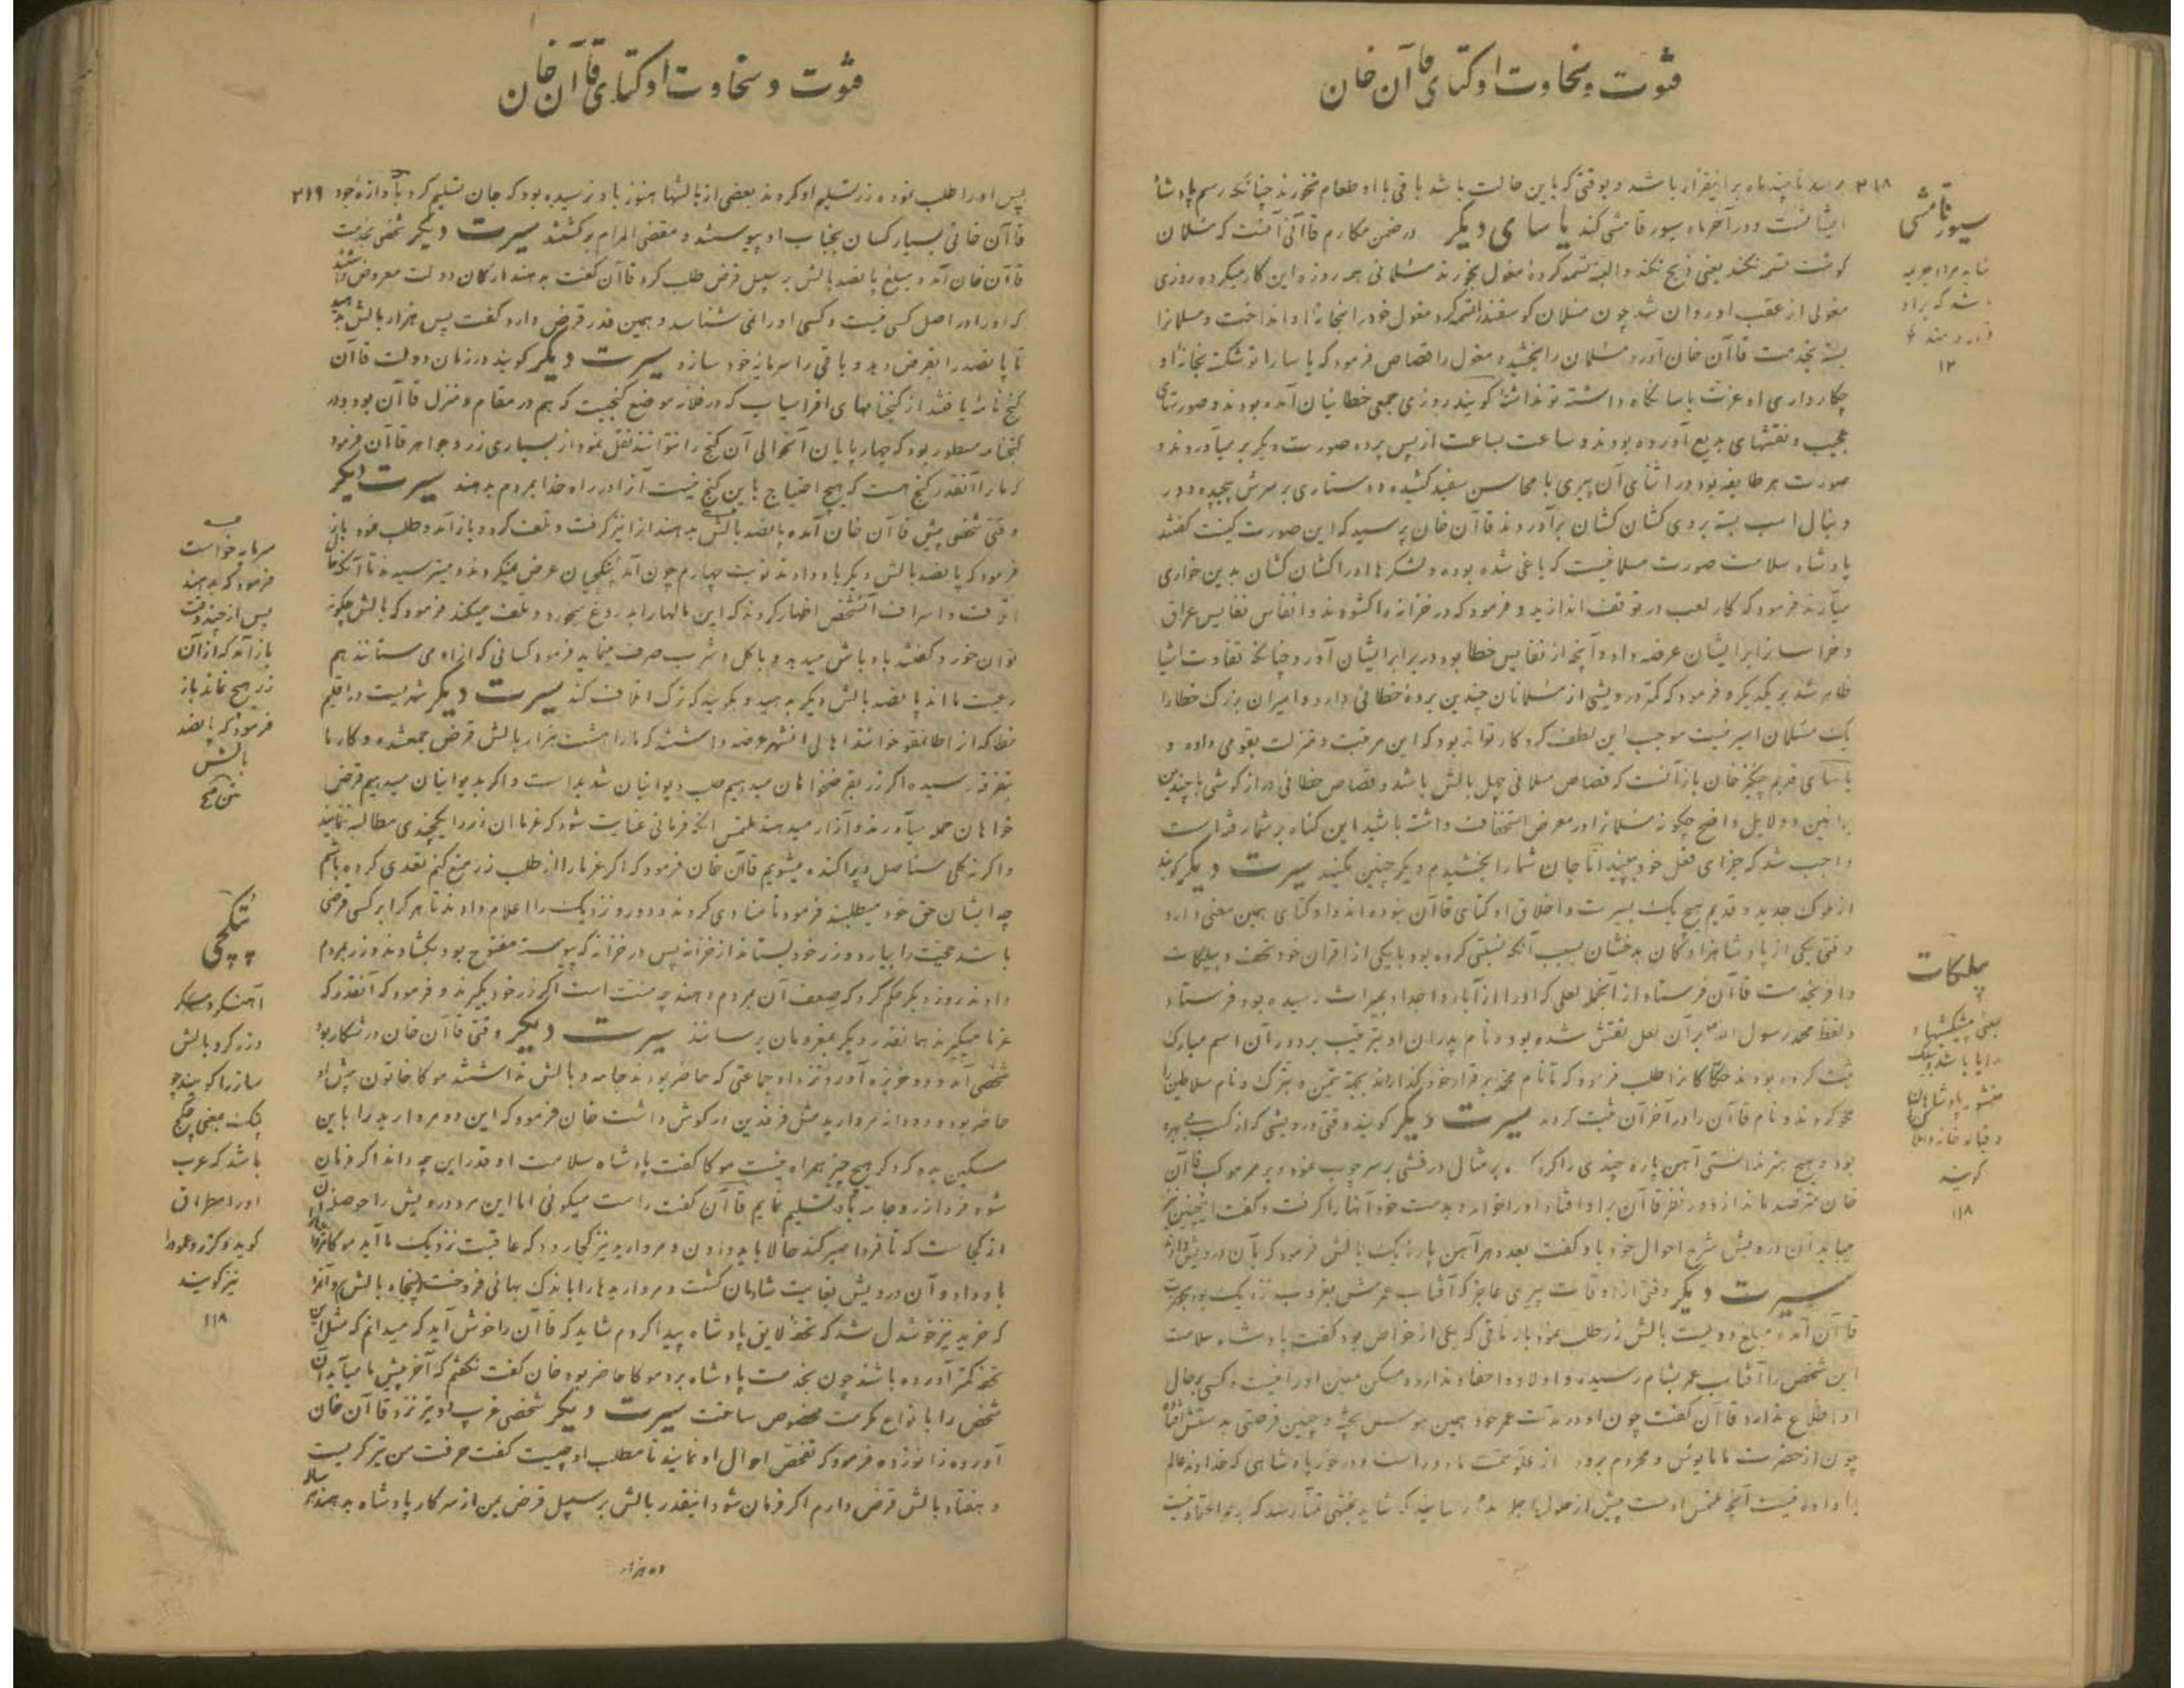 فتوت و سخاوت اوکتای قاآن خان
۲۱۸ برسد تا چند ماه براینقرار باشد و بوقتی که باین حالت باشد باقی با او طعام نخورند چنانکه رسم پادشاه
ایشانست و در آخر ماه سیورقامشی کند یاسای دیگر در ضمن مکارم قاآنی آنست که مسلمان
گوشت تسمه نکند یعنی ذبح نکند و البته تسمه کرده مغول بخورند مسلمانی همه روزه این کار میکرده روزی
مغولی از عقب او روان شد چون مسلمان گوسفند را تسمه کرد مغول خود را بخانه او انداخت و مسلمانرا
بسته بخدمت قاآن خان آورد مسلمان را بخشیده مغول را قصاص فرمود که یاسا را تو شکسته بخانه او
چکار داری او عزت یاسا نگاه داشته تو نداشتی گویند روزی جمعی خطائیان آمده بودند و صورتهای
عجیب و نقشهای بدیع آورده بودند و ساعت بساعت از پس پرده صورت دیگر بر میآوردند و
صورت هر طایفه بود در اثنای آن پیری با محاسن سفید کشیده دستاری بر سرش پیچیده و در
دنبال اسب بسته بروی کشان کشان برآوردند قاآن خان پرسید که این صورت کیست گفتند
پادشاه سلامت صورت مسلمانیست که یاغی شده بوده و لشکرها او را کشان کشان بدین خواری
میآرند فرمود که کار لعب در توقف اندازید و فرمود که در خزانه را گشودند و انفاس نفایس عراق
و خراسانرا برایشان عرضه داد و آنچه از نفایس خطا بود در برابر ایشان آورد چنانکه تفاوت اشیا
ظاهر شد بر یکدیگر و فرمود که کمتر درویشی از مسلمانان چندین برده خطائی دارد و امیران بزرگ خطا را
یک مسلمان اسیر نیست موجب این لطف کردکار تواند بود که این مرتبت و منزلت بقومی داده و
یاسای قدیم چنگیز خان باز آنست که قصاص مسلمانی چهل بالش باشد و قصاص خطائی درازگوشی با چندین
براهین و دلایل واضح چگونه مسلمانرا در معرض استخفاف داشته باشید این گناه بر شما رفته است
واجب شد که جزای فعل خود ببینید اما جان شما را بخشیدم دیگر چنین نکنید سیرت دیگر گویند
از ملوک جدید و قدیم هیچ یک بسیرت و اخلاق اوکتای قاآن نبوده اند و اوکتای همین معنی دارد
وقتی یکی از پادشاهزادگان بدخشان بسبب آنکه نسبتی کرده بود با یکی از اقران خود تحف و بیلکات
وافر بخدمت قاآن فرستاد از آنجمله لعلی که او را از آباء و اجداد بمیراث رسیده بود فرستاد
و لفظ محمد رسول الله بر آن لعل نقش شده بود و نام پدران او بترتیب بر دور آن اسم مبارک
ثبت کرده بودند حکاکانرا طلب فرمود که تا نام محمد برقرار خود گذارند بجهة تیمن و تبرک و نام سلاطین را
محو کردند و نام قاآن را در آخر آن ثبت کردند سیرت دیگر گویند وقتی درویشی که از کسب بی بهره
بود و هیچ هنر ندانستی آهن پاره چندی را بر مثال درفشی بر سر چوب نموده بر ممر موکب قاآن
خان مترصد ماند از دور نظر قاآن بر او افتاد او را خواند و بدست خود آنها را گرفت و گفت اینچنین نیز
میباید آن درویش شرح احوال خود باو گفت بعدد هر آهن پاره یک بالش فرمود که بآن درویش دادند
سیرت دیگر وقتی از اوقات پیری عاجز که آفتاب عمرش بغروب نزدیک بود بحضرت
قاآن آمده مبلغ دویست بالش زر طلب نمود بارتاقی که یکی از خواص بود گفت پادشاه سلامت
این شخص را آفتاب عمر بشام رسیده و اولاد و احفاد ندارد و مسکن معین او را نیست و کسی بر حال
او اطلاع ندارد قاآن گفت چون او در مدت عمر خود همین هوس پخته و چنین فرصتی بدستش افتاده
چون از حضرت ما مأیوس و محروم برود از علو همت ما دور است و در خور پادشاهی که خداوند عالم
بما داده نیست آنچه ملتمس اوست پیش از حلول اجل بدو رسانید که شاید بمنتهی تمنا رسد که بر عمر اعتماد نیست
سیورقامشی
۱۲
بیلکات
یعنی پیشکشها و
هدایا باشد
منشور پادشاهان
گویند
۱۱۸
فتوت و سخاوت اوکتای قاآن خان
پس او را طلب نموده زر تسلیم او کردند بعضی از بالشها هنوز باو نرسیده بود که جان تسلیم کرد بآوازه جود ۲۱۹
قاآن خانی بسیار کسان بجناب او پیوستند و مقضی المرام برگشتند سیرت دیگر شخصی بخدمت
قاآن خان آمد و مبلغ پانصد بالش بر سبیل قرض طلب کرد قاآن گفت بدهند ارکان دولت معروض داشتند
که او را در اصل کسی نیست و کسی او را نمی شناسد و همین قدر قرض دارد گفت پس هزار بالش بدهید
تا پانصد را بقرض دهد و باقی را سرمایه خود سازد سیرت دیگر گویند در زمان دولت قاآن
گنج نامه یافتند از گنجنامهای افراسیاب که در فلان موضع گنجیست که هم در مقام و منزل قاآن بود و در
گنجنامه مسطور بود که چهارپایان آنحوالی آن گنج را نتوانند نقل نمود از بسیاری زر و جواهر قاآن فرمود
که ما را آنقدر گنج هست که هیچ احتیاج باین گنج نیست آنرا در راه خدا بمردم بدهند سیرت دیگر
وقتی شخصی پیش قاآن خان آمده پانصد بالش بدهند آنرا نیز گرفت و تلف کرد و باز آمد و طلب نمود باز
فرمود که پانصد بالش دیگر باو دادند نوبت چهارم چون آمد تنکچیان عرض نمیکردند و میترسیدند تا آنکه
و اسراف آنشخص اظهار کردند که این مالها را بدروغ میخورد و تلف میکند فرمود که بالش چگونه
توان خورد گفتند باوباش میدهد و باکل و شرب صرف مینماید فرمود کسانی که از او می ستانند هم
رعیت ما اند پانصد بالش دیگر بدهید و بگویید که ترک اتلاف کند سیرت دیگر شهریست در اقلیم
خطا که از اطامنقو خوانند اهالی آنشهر عرضه داشتند که ما را هشت هزار بالش قرض جمع شده و کار ما
بتفرقه رسیده اگر زر بقرضخواهان میدهیم دیوانیان شدید است و اگر بدیوانیان میدهیم قرض
خواهان حمله میآورند و آزار میدهند ملتمس آنکه فرمانی عنایت شود که غرما آن زر را یکچندی مطالبه ننمایند
و اگرنه کلی مستأصل و پراکنده میشویم قاآن خان فرمود که اگر غرما را از طلب زر منع کنم تعدی کرده باشم
چه ایشان حق خود میطلبند فرمود تا منادی کردند و دور و نزدیک را اعلام دادند تا هر که را بر کسی قرضی
باشد حجت را بیارد و زر خود بستاند از خزانه پس در خزانه که پیوسته مفتوح بود بگشادند و زر بمردم
دادند روز دیگر حکم کرد که ضعف آن بمردم دهند چه منت است اگر زر خود بگیرند و فرمود که آنقدر که
غرما میگیرند همانقدر دیگر بمقروضان برسانند سیرت دیگر وقتی قاآن خان در شکار بود
شخصی آمد و دو خربزه آورد و نزد او جماعتی که حاضر بودند جامه و بالش نداشتند موکا خاتون پیش او
حاضر بود و دو دانه مروارید مثل فرقدین در گوش داشت خان فرمود که این دو مروارید را باین
مسکین بده که دیگر هیچ چیز همراه نیست موکا گفت پادشاه سلامت او قدر این چه داند اگر فرمان
شود فردا زر و جامه باو تسلیم نمایم قاآن گفت راست میگوئی اما این مرد درویش را حوصله آن
از کجاست که تا فردا صبر کند حالا باید دادن و مروارید نیز کجا رود که عاقبت نزدیک ما آید موکا
باو داد و آن درویش بغایت شادمان گشت و مرواریدها را باندک بهائی فروخت (پنجاه بالش) و آنرا
که خرید نیز خوشدل شد که تحفه لایق پادشاه پیدا کردم شاید که قاآن را خوش آید که میدانم که مثل این
تحفه کمتر آورده باشند چون بخدمت پادشاه برد موکا حاضر بود خان گفت نگفتم که آخر پیش ما میآید آن
شخص را بانواع مکرمت مخصوص ساخت سیرت دیگر شخصی غریب دو تیر نزد قاآن خان
آورده زانو زده فرمود که تفحص احوال او نمایند تا مطلب او چیست گفت حرفت من تیرگریست
و هفتاد بالش قرض دارم اگر فرمان شود اینقدر بالش بر سبیل قرض بمن از سرکار پادشاه بدهند
ده هزار
سرمایه خواست
فرمود که بدهند
پس از چند وقت
باز آمد که از آن
زر هیچ نماند باز
فرمود که پانصد
بالش
تنکچی
آهنگر و مسگر
و زرگر و بالش
ساز را گویند چو
پتک یعنی چکج
باشد که عرب
او را مطراق
گوید و گرز و عمود را
نیز گویند
۱۱۸